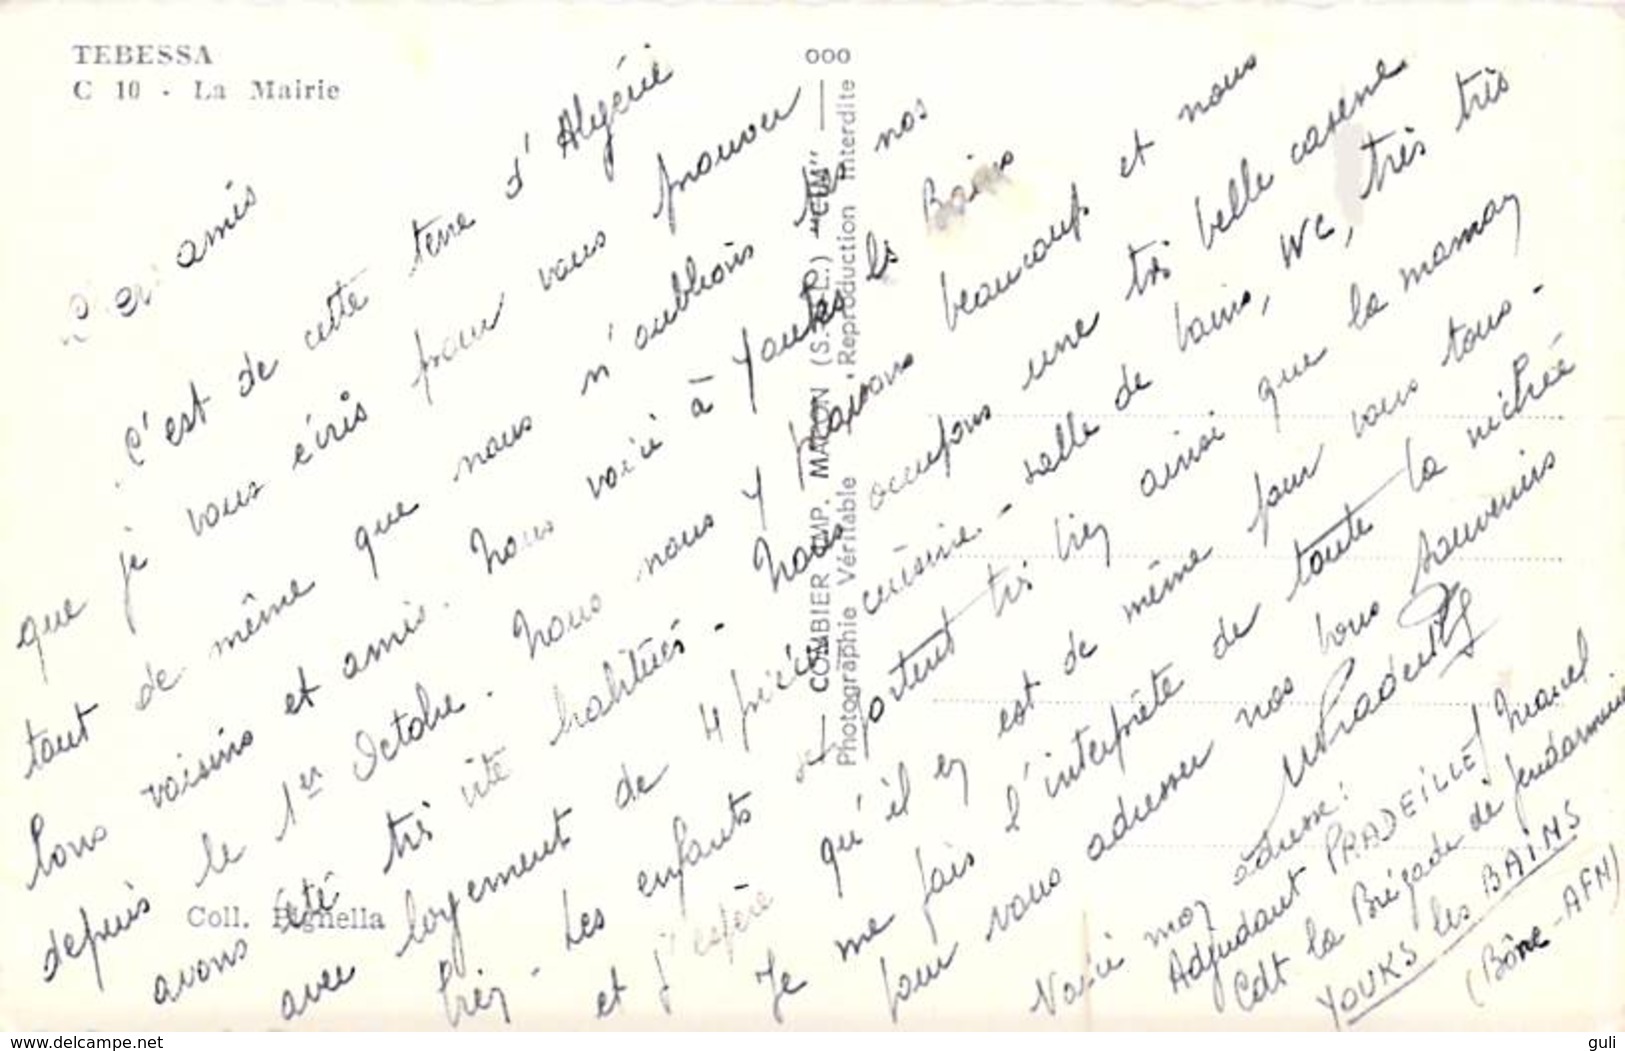 TEBESSA
C 10 - La Mairie
Chers amis
C'est de cette terre d'Algérie
que je vous écris pour vous prouver
tout de même que nous n'oublions pas nos
bons voisins et amis. Nous voici à Youks les Bains
depuis le 1er Octobre. Nous nous y plaisons beaucoup et nous
avons été très vite habitués - Nous occupons une très belle caserne
avec logement de 4 pièces cuisine - salle de bains, WC, très très
bien - Les enfants se portent très bien ainsi que la maman
et j'espère qu'il en est de même pour vous tous -
Je me fais l'interprète de toute la nichée
pour vous adresser nos bons souvenirs
MPradeille
Voici mon adresse :
Adjudant PRADEILLE Marcel
Cdt la Brigade de Gendarmerie
YOUKS les BAINS
(Bône - AFN)
Coll. Bignella
COMBIER IMP. MACON (S.-&-L.) "CIM"
Photographie Véritable - Reproduction Interdite
ooo
www.delcampe.net
guli